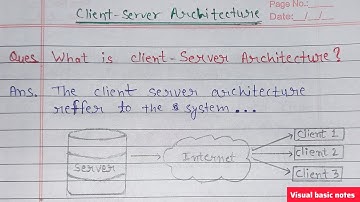 Page No.:
Date: / /
Client-Server Architecture
Ques What is client-Server Architecture?
Ans. The client server architecture
reffer to the system...
Server
Internet
Client 1
Client 2
Client 3
Visual basic notes